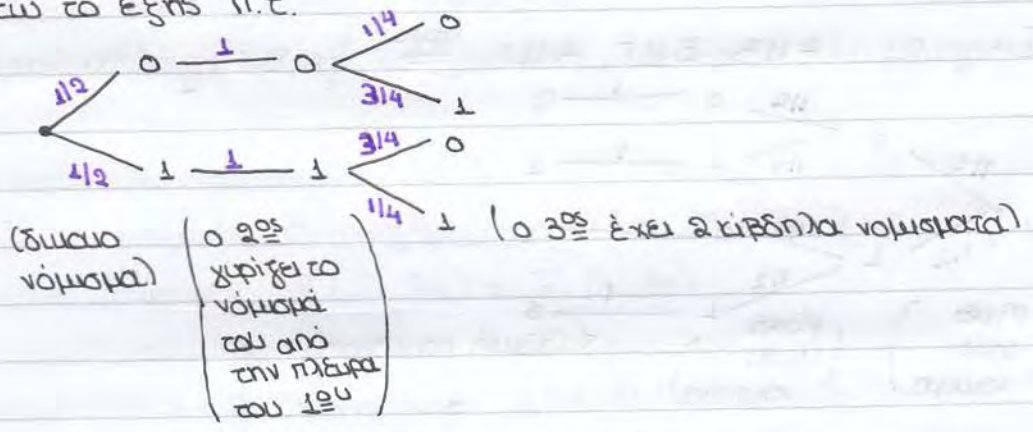 το εξής Π.τ.
1/2 0 1 0 1/4 0
3/4 1
1/2 1 1 1 3/4 0
1/4 1
(δίκαιο νόμισμα)
(ο 2ος γυρίζει το νόμισμά του από την πλευρά του 1ου)
(ο 3ος έχει 2 κίβδηλα νομίσματα)